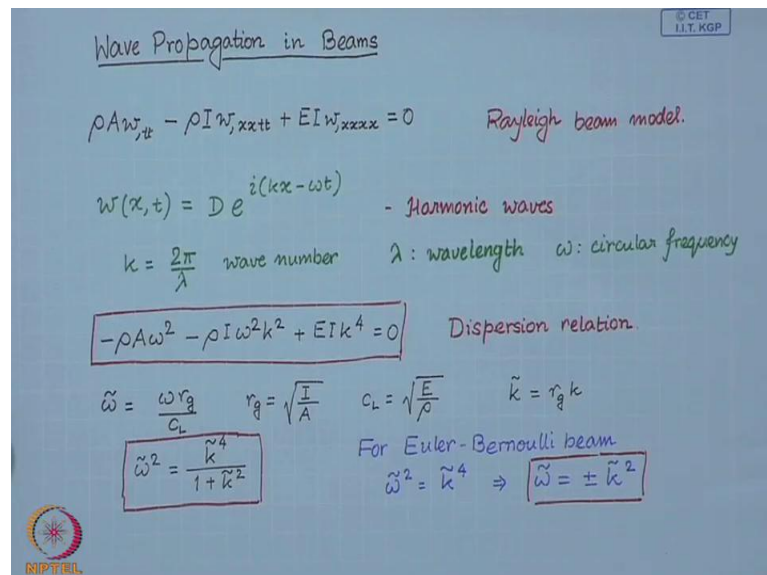 © CET
I.I.T. KGP
Wave Propagation in Beams
ρAw,tt − ρIw,xxtt + EIw,xxxx = 0 Rayleigh beam model.
w(x,t) = D e^{i(kx−ωt)} - Harmonic waves
k = 2π/λ wave number λ : wavelength ω : circular frequency
−ρAω² − ρIω²k² + EIk⁴ = 0 Dispersion relation.
ω̃ = ωr_g/c_L r_g = √(I/A) c_L = √(E/ρ) k̃ = r_g k
For Euler-Bernoulli beam
ω̃² = k̃⁴/(1 + k̃²) ω̃² = k̃⁴ ⇒ ω̃ = ± k̃²
NPTEL